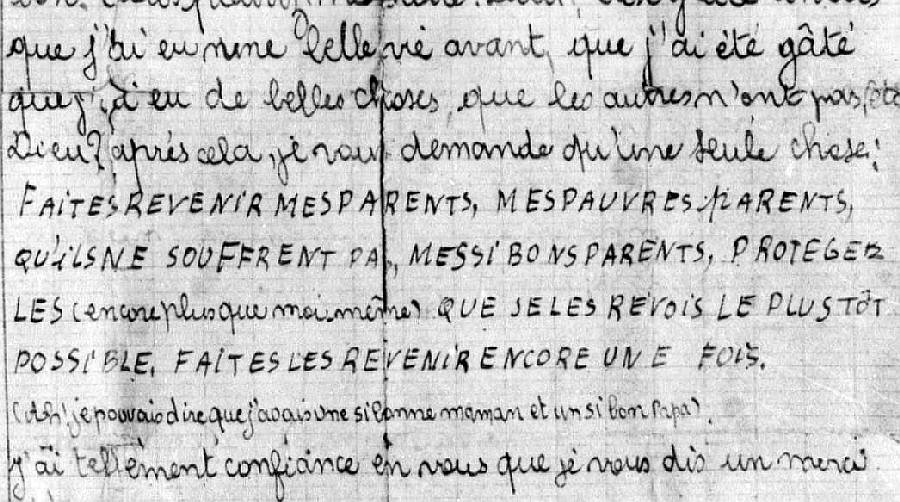 que j'ai eu une belle vie avant, que j'ai été gâté
que j'ai eu de belles choses, que les autres n'ont pas,
Dieu? après cela, je vous demande qu'une seule chose:
FAITES REVENIR MES PARENTS, MES PAUVRES PARENTS,
QU'ILS NE SOUFFRENT PA, MES SI BONS PARENTS, PROTEGER
LES (encore plus que moi-même) QUE JE LES REVOIS LE PLUS TÔT
POSSIBLE, FAITES LES REVENIR ENCORE UNE FOIS.
(Ah! je pouvais dire que j'avais une si bonne maman et un si bon papa).
j'ai tellement confiance en vous que je vous dis un merci